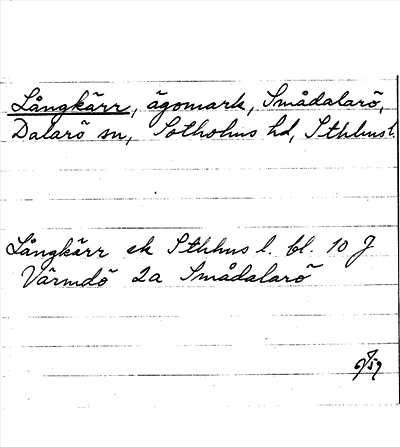 Långkärr, ägomark, Smådalarö,
Dalarö sn, Sotholms hd, Sthlms l.
Långkärr ek Sthlms l. bl. 10 J
Värmdö 2a Smådalarö